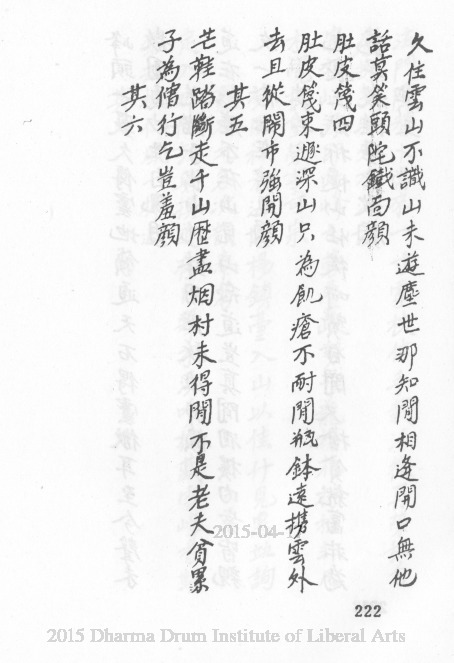 久住雲山不識山未遊塵世那知閒相逢開口無他
話莫笑頭陀鐵面顏
肚皮篾四
肚皮篾束遯深山只為飢瘡不耐閒瓶鉢遠携雲外
去且從鬧市強開顏
其五
芒鞋踏斷走千山歷盡烟村未得閒不是老夫貧累
子為僧行乞豈羞顏
其六
222
2015-04-
2015 Dharma Drum Institute of Liberal Arts